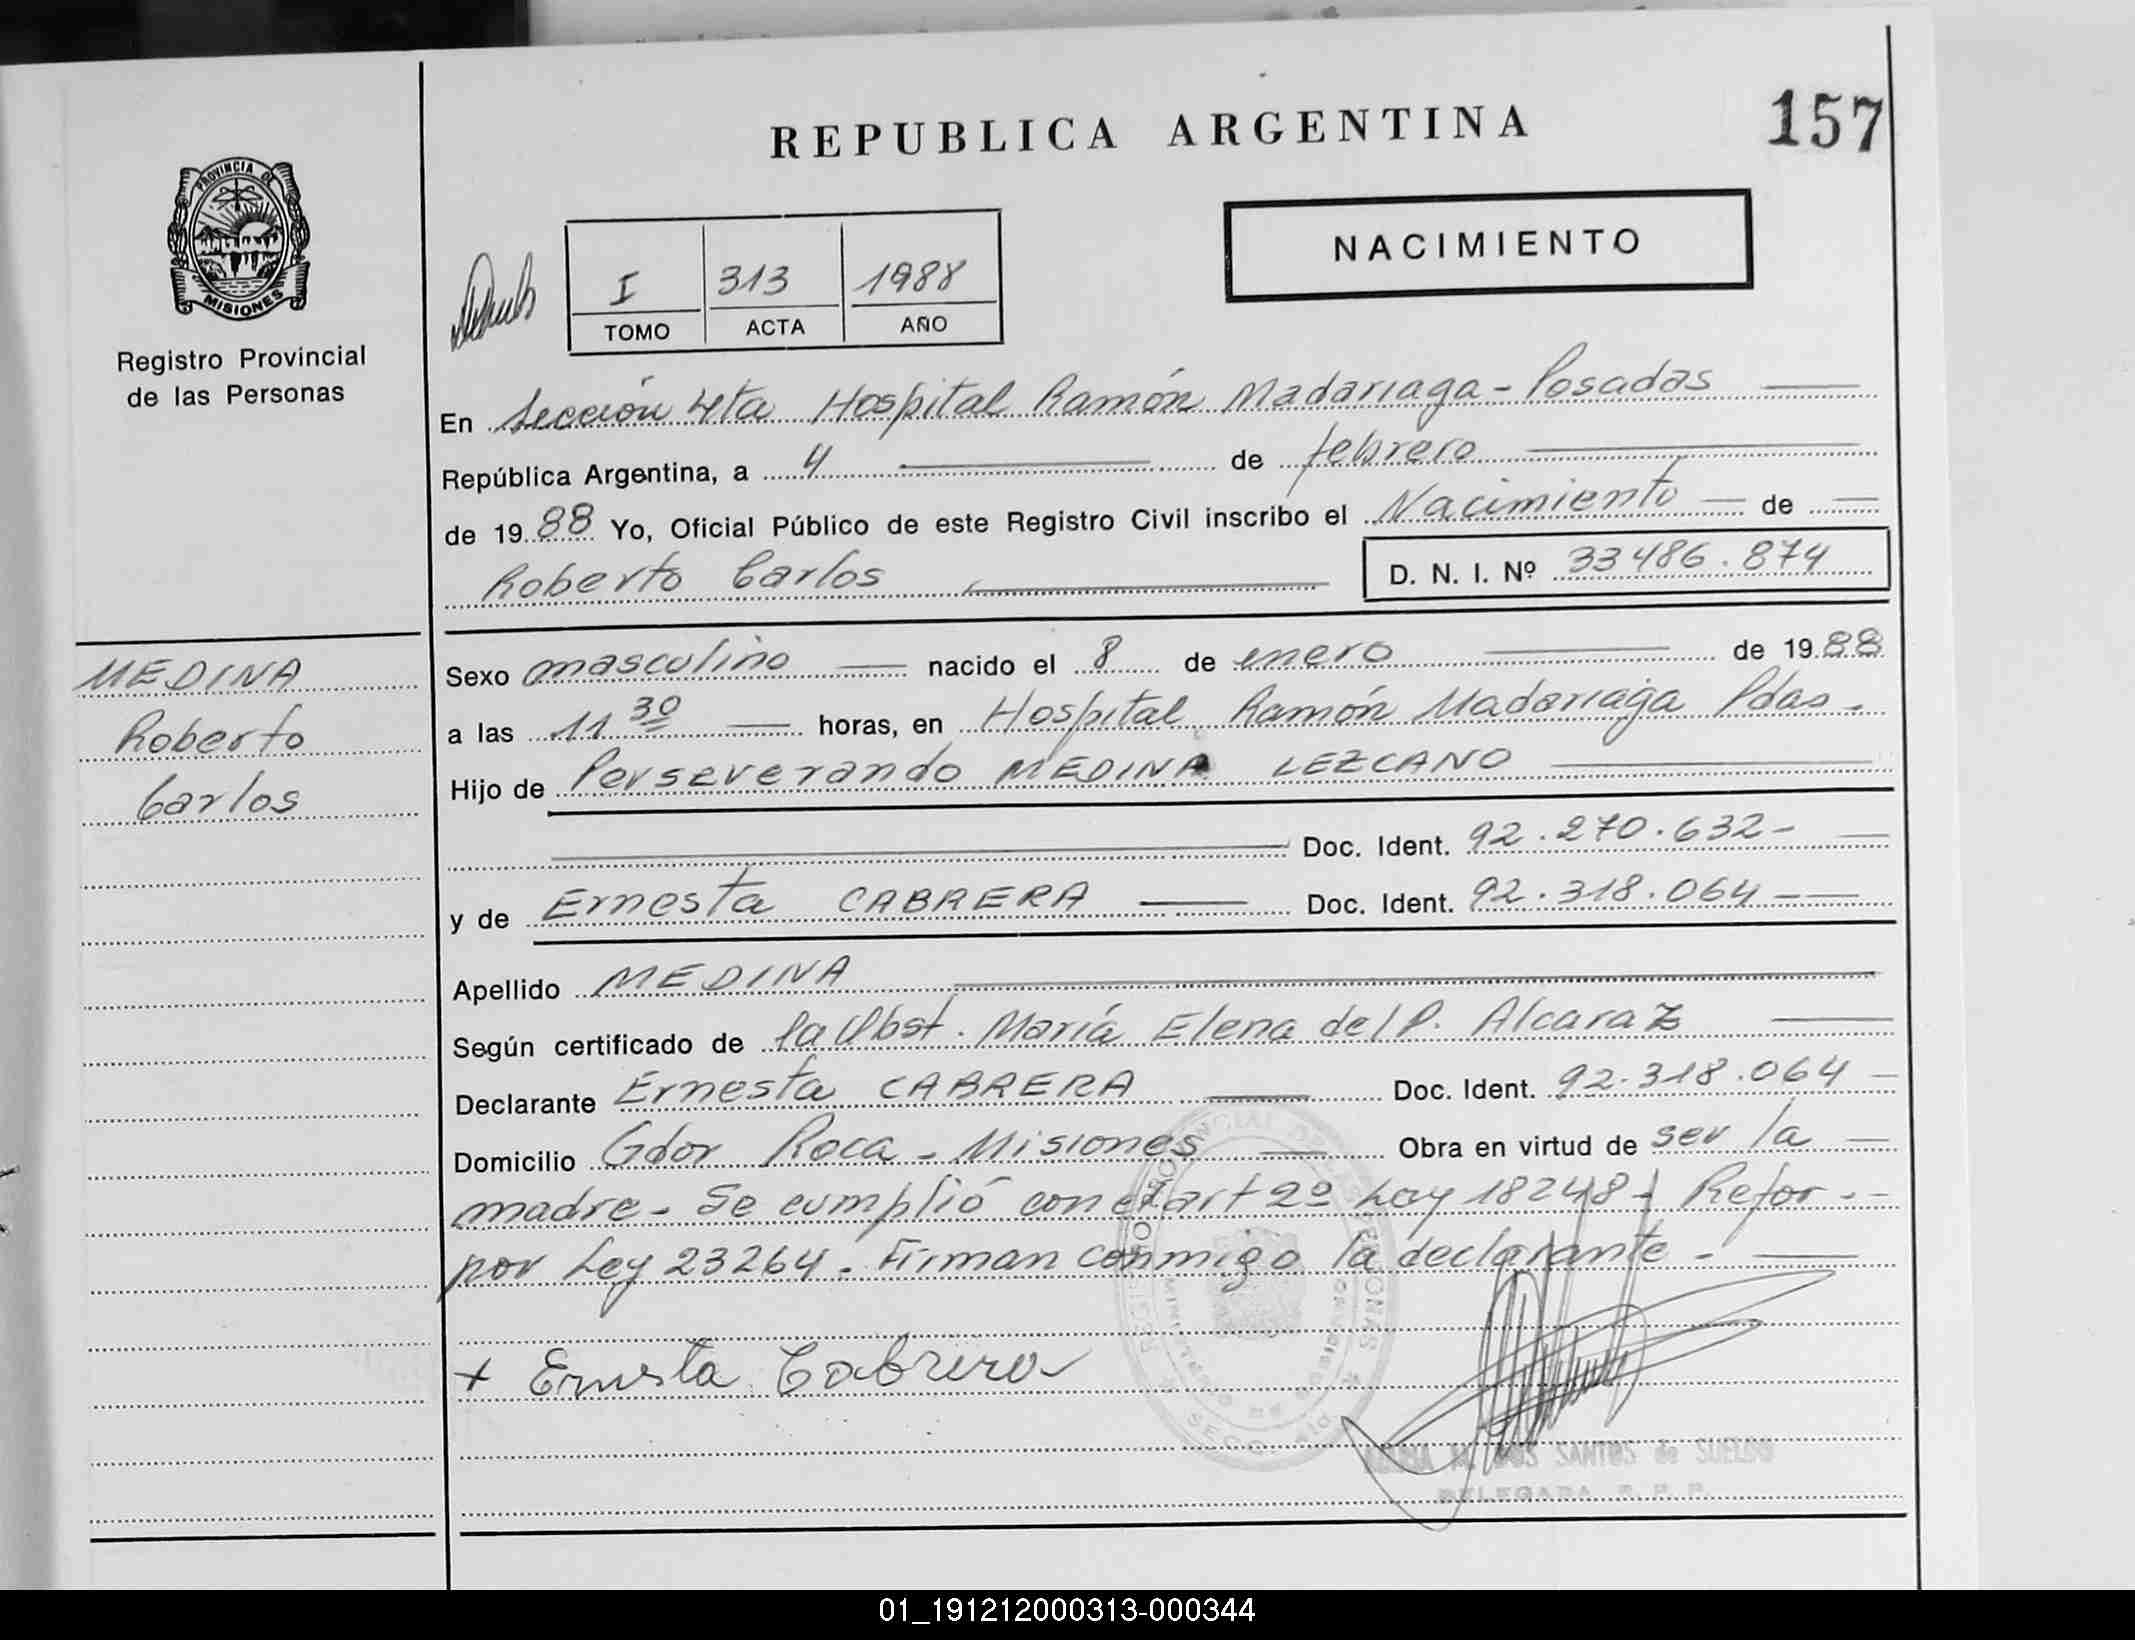 REPUBLICA ARGENTINA
157
PROVINCIA DE
MISIONES
Registro Provincial
de las Personas
NACIMIENTO
I 313 1988
TOMO ACTA AÑO
En Sección 4ta Hospital Ramón Madariaga - Posadas
República Argentina, a 4 de febrero
de 1988 Yo, Oficial Público de este Registro Civil inscribo el Nacimiento de
Roberto Carlos D. N. I. Nº 33486.874
MEDINA
Roberto
Carlos
Sexo masculino nacido el 8 de enero de 1988
a las 11 30 horas, en Hospital Ramón Madariaga Pdas.
Hijo de Perseverando MEDINA LEZCANO
Doc. Ident. 92.270.632-
y de Ernesta CABRERA Doc. Ident. 92.318.064-
Apellido MEDINA
Según certificado de la Obst. María Elena del P. Alcaraz
Declarante Ernesta CABRERA Doc. Ident. 92.318.064
Domicilio Gdor Roca - Misiones Obra en virtud de ser la
madre - Se cumplió con el art 2º Ley 18248 - Refor.
por Ley 23264. Firman conmigo la declarante -
+ Ernesta Cabrera
DOS SANTOS de SUELDO
DELEGADA R. P. P.
01_191212000313-000344